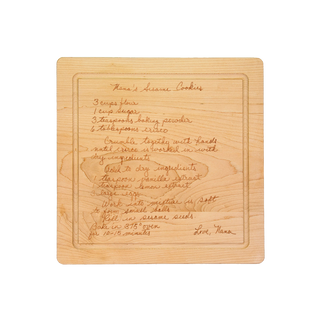 Nana's Sesame Cookies
3 cups flour
1 cup sugar
3 teaspoons baking powder
6 tablespoons crisco
Crumble together with hands
until crisco is worked in with
dry ingredients
Add to dry ingredients
teaspoon vanilla extract
teaspoon lemon extract
three eggs
Work into mixture for soft
small
Roll in sesame seeds
Bake in 375° oven
for 10-15 minutes
Love, Nana